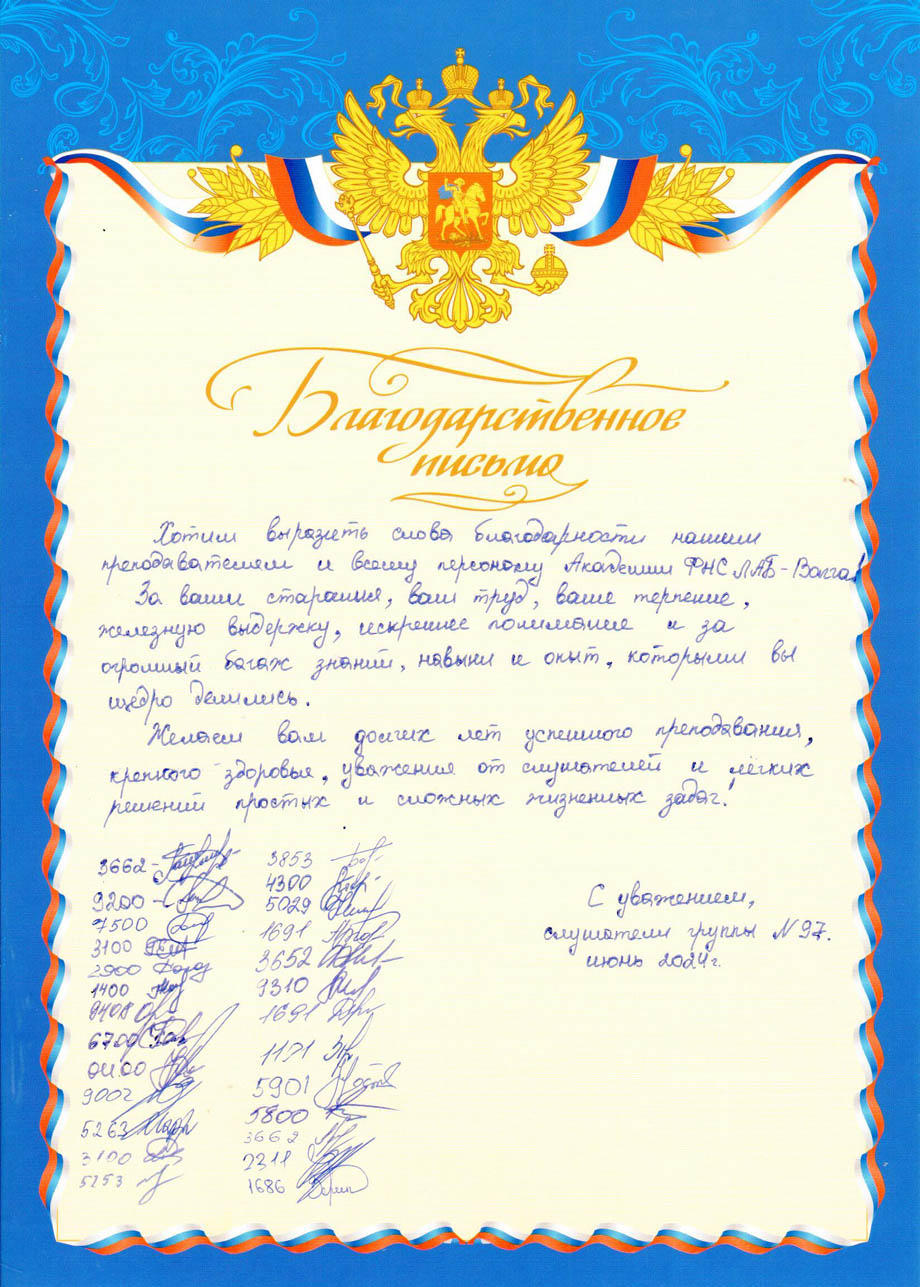 Благодарственное
письмо
Хотим выразить слова благодарности нашим
преподавателям и всему персоналу Академии ФНС ЛАБ-Волга!
За ваши старания, ваш труд, ваше терпение,
железную выдержку, искреннее понимание и за
огромный багаж знаний, навыки и опыт, которыми вы
щедро делились.
Желаем вам долгих лет успешного преподавания,
крепкого здоровья, уважения от слушателей и лёгких
решений простых и сложных жизненных задач!
3662 -
9200 -
7500
3100
3900
1400
9408
6700
0400
9002
5263
3100
5253
3853
4300
5029
1691
3652
9310
1691
1101
5901
5800
3662
2311
1686
С уважением,
слушатели группы N 97.
июнь 2024г.